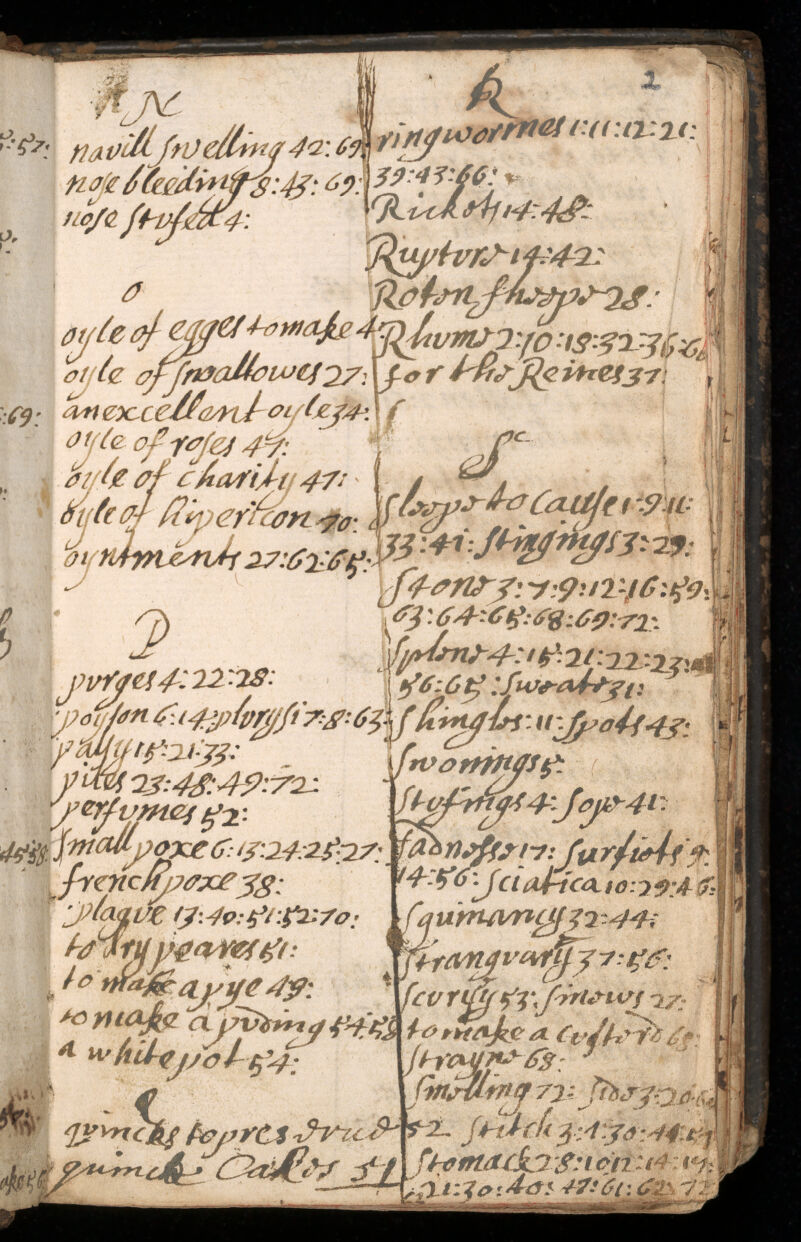 2
N
navill swelling 42: 69:
nose bleeding 8: 43: 69:
nose stufed 4:
o
oyle of egges to make 4
oyle of swallowes 27:
an excellent oyle 34:
oyle of roses 47:
oyle of charity 47:
oyle of hipericon 70:
oyntments 27: 62: 65:
P
purges 4: 22: 28:
poyson 6: 14: plurysi 7: 8: 63:
palsy 15: 21: 33:
piles 23: 48: 49: 72:
perfumes 52:
small poxe 6: 13: 24: 25: 27:
french poxe 38:
plague 13: 40: 51: 52: 70:
to dry peares 51:
to make a pye 49:
to make a puding 54: 58
a white pot 54:
Q
quinces to preserue 52
quince Cakes 51
R
ringwormes 1: 11: 12: 21:
39: 43: 66:
Rickets 14: 48:
Rupture 14: 42:
Roten sheepe 28:
Rhume 2: 10: 18: 32: 36: 6
for the Reines 37:
S
sleepe to cause 1: 9: 11:
33: 41: stingings 3: 29:
stone 3: 7: 9: 12: 16: 59:
63: 64: 65: 68: 69: 72:
splene 4: 15: 21: 22: 23:
56: 65: sweate 31:
shingles: 11: spots 43:
swonings 5:
stufings 4: sope 41:
sadnesse 17: surfiots 9:
14: 56: sciatica 10: 29: 46:
squinancy 32: 44:
stranguary 37: 56:
scurvy 53: sinows 27:
to make a custord 68:
strayne 68:
smelling 72: side 3: 20:
stitch 3: 4: 30: 44: 51
stomack 2: 8: 10: 12: 14: 19:
21: 30: 40: 47: 61: 62: 72
5: 57:
: 69:
45: 58: